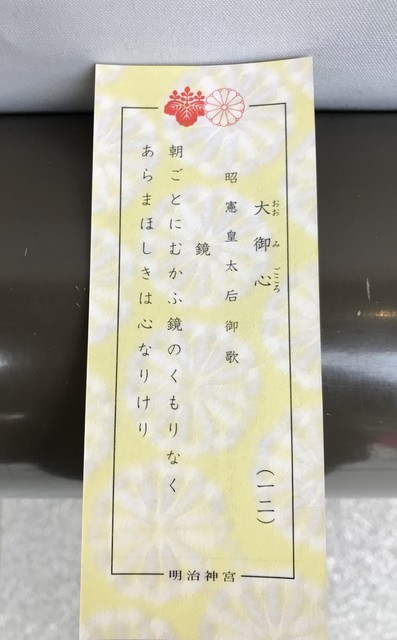 おおみごころ
大御心 (一二)
昭憲皇太后御歌
鏡
朝ごとにむかふ鏡のくもりなく
あらまほしきは心なりけり
明治神宮